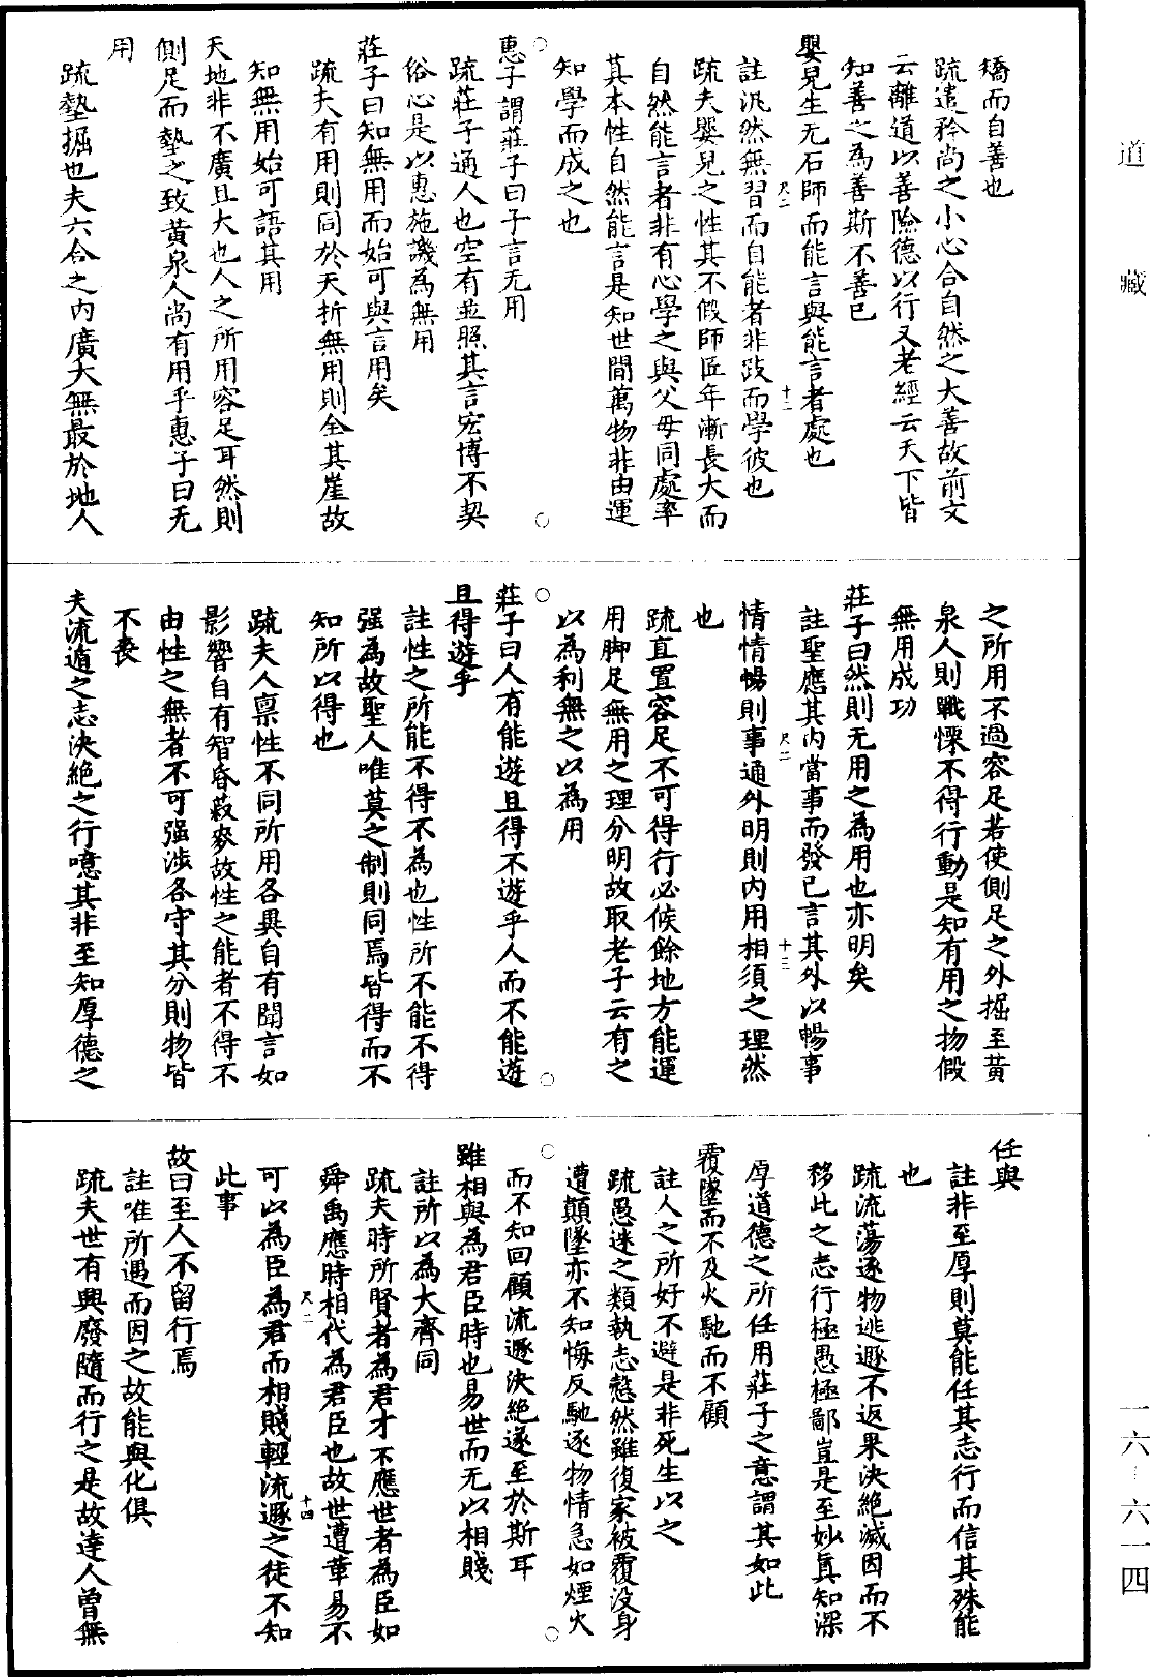 道藏
矯而自善也
疏遣矜尚之小心合自然之大善故前文
云離道以善險德以行又老經云天下皆
知善之為善斯不善已
嬰兒生无石師而能言與能言者處也
註汎然無習而自能者非跂而學彼也
尺二 十二
疏夫嬰兒之性其不假師匠年漸長大而
自然能言者非有心學之與父母同處率
其本性自然能言是知世間萬物非由運
知學而成之也
惠子謂莊子曰子言无用
疏莊子通人也空有並照其言宏博不契
俗心是以惠施譏為無用
莊子曰知無用而始可與言用矣
疏夫有用則同於夭折無用則全其崖故
知無用始可語其用
天地非不廣且大也人之所用容足耳然則
側足而墊之致黃泉人尚有用乎惠子曰无
用
疏墊掘也夫六合之內廣大無最於地人
之所用不過容足若使側足之外掘至黃
泉人則戰慄不得行動是知有用之物假
無用成功
莊子曰然則无用之為用也亦明矣
註聖應其內當事而發已言其外以暢事
尺二 十三
情情暢則事通外明則內用相須之理然
也
疏直置容足不可得行必候餘地方能運
用脚足無用之理分明故取老子云有之
以為利無之以為用
莊子曰人有能遊且得不遊乎人而不能遊
且得遊乎
註性之所能不得不為也性所不能不得
强為故聖人唯莫之制則同焉皆得而不
知所以得也
疏夫人禀性不同所用各異自有聞言如
影響自有智昏菽麥故性之能者不得不
由性之無者不可强涉各守其分則物皆
不喪
夫流遁之志決絕之行噫其非至知厚德之
任與
註非至厚則莫能任其志行而信其殊能
也
疏流蕩逐物逃遯不返果決絕滅因而不
移此之志行極愚極鄙豈是至妙真知深
厚道德之所任用莊子之意謂其如此
覆墜而不及火馳而不顧
註人之所好不避是非死生以之
疏愚迷之類執志慤然雖復家被覆沒身
遭顛墜亦不知悔反馳逐物情急如煙火
而不知回顧流遯決絕遂至於斯耳
雖相與為君臣時也易世而无以相賤
註所以為大齊同
疏夫時所賢者為君才不應世者為臣如
舜禹應時相代為君臣也故世遭革易不
尺二 十四
可以為臣為君而相賤輕流遯之徒不知
此事
故曰至人不留行焉
註唯所遇而因之故能與化俱
疏夫世有興廢隨而行之是故達人曾無
一六–六一四